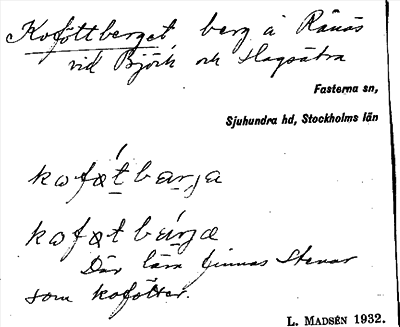 Kofóttberget berg å Rånäs
vid Björk och Hagsätra
Fasterna sn,
Sjuhundra hd, Stockholms län
koføtbærja
koføtbærjæ
Där lära finnas Stenar
som kofötter.
L. MADSÉN 1932.